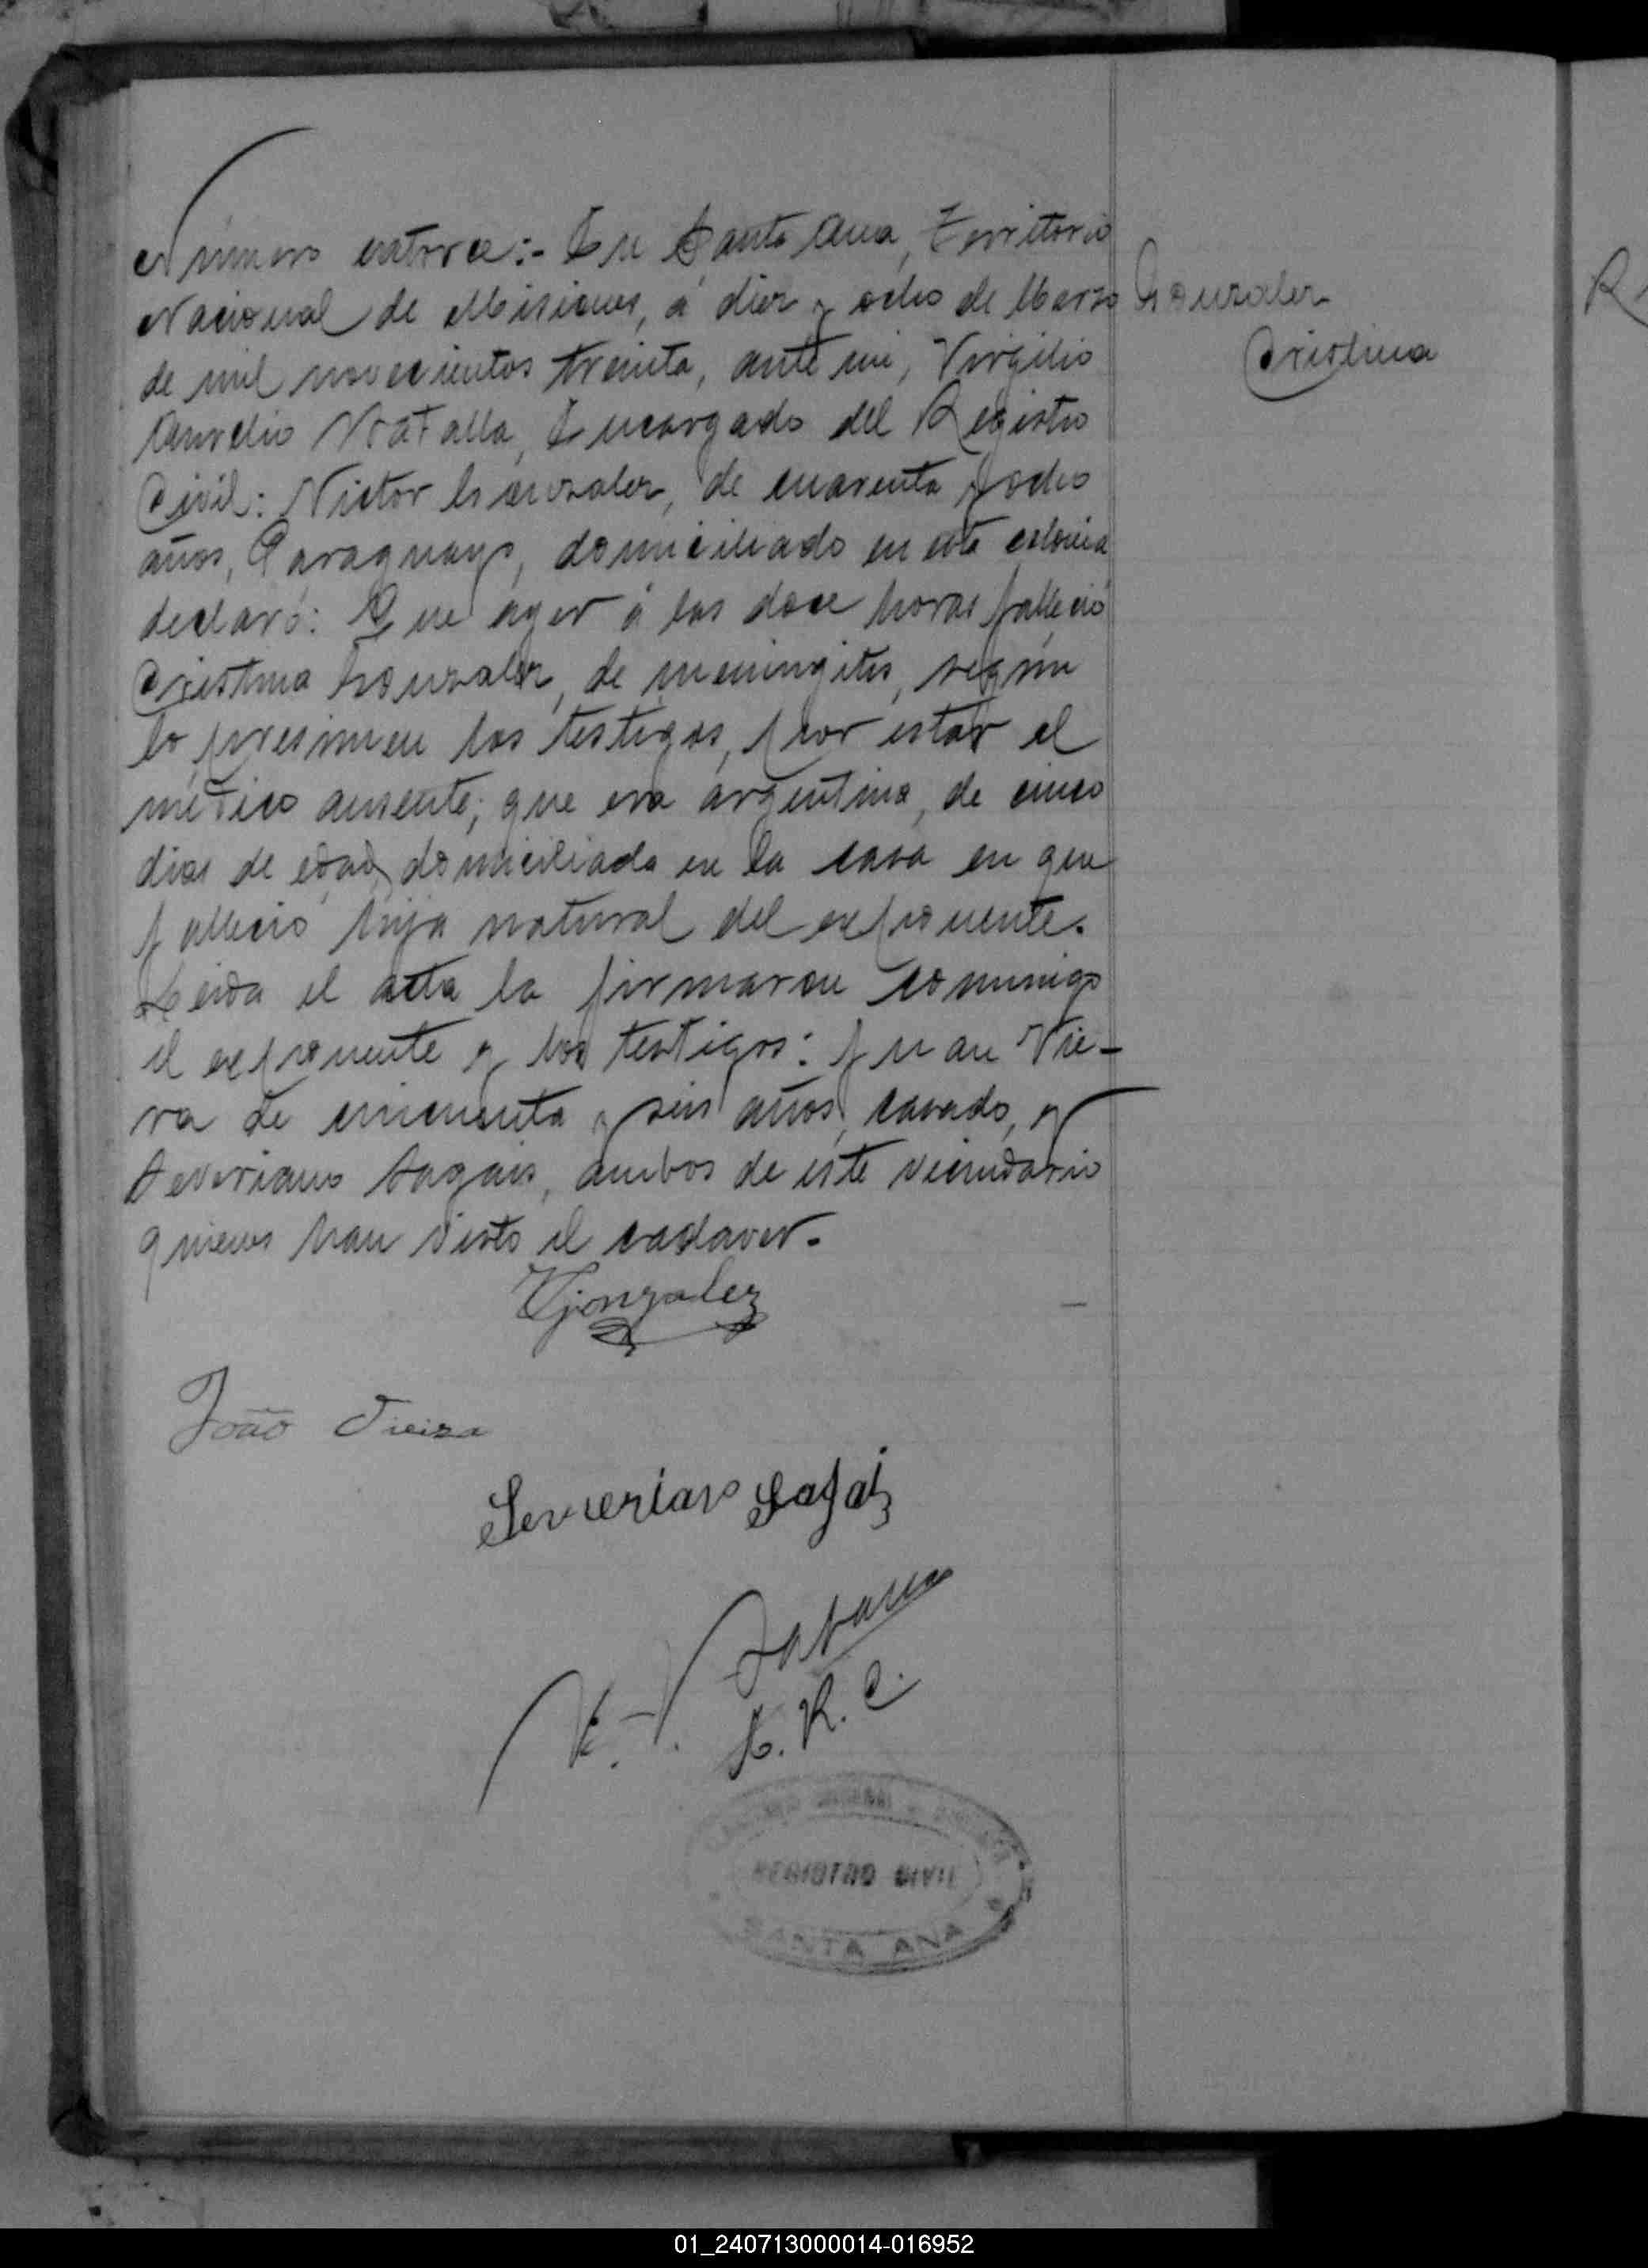 Número catorce:- En Santa Ana, Territorio
Nacional de Misiones, á diez y ocho de Marzo
de mil novecientos treinta, ante mi, Virgilio
Aurelio Encargado del Registro
Civil: Victor Gonzalez, de cuarenta y ocho
años, Paraguayo, domiciliado en esta colonia
declaró: Que ayer á las doce horas falleció
Cristina Gonzalez, de meningitis, según
lo presumen los testigos, por estar el
médico ausente; que era argentina, de cinco
dias de edad, domiciliada en la casa en que
falleció hija natural del exponente.
Leida el acta la firmaron conmigo
el exponente y los testigos: Juan Vie-
ra de cincuenta y seis años, casado, y
Severiano Sagais, ambos de este vecindario
quienes han visto el cadaver.
Gonzalez
Cristina
VGonzalez
João Vieira
Severiano
E. R. C.
REGISTRO CIVIL
SANTA ANA
01_240713000014-016952